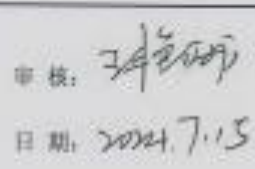 审 核:
日 期: 2021.7.15